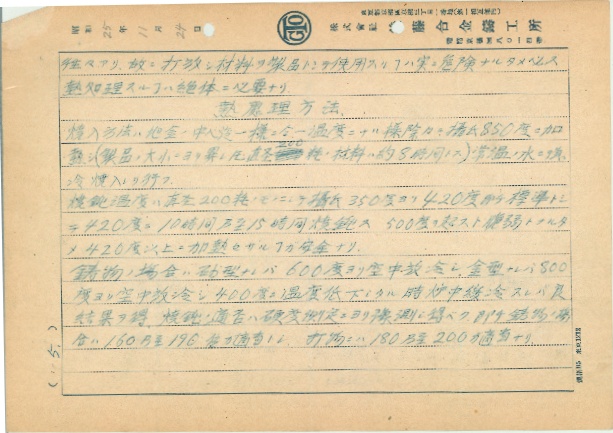 昭和 25年 11月 24日
GTO
株式會社 藤合金鑄工所
打放シ材料ヲ製品トシテ使用スルハ実ニ危険ナルタメ
熱処理スルハ絶体ニ必要ナリ
熱處理方法
焼入方法ハ地金ノ中心迄一様ニ今一温度ニナル様除々ニ攝氏850度ニ加
熱シ(製品ノ大小ニヨリ異レ圧直径200粍ノ材料ハ約8時間トス)常温ノ水ニ
冷焼入レヲ行フ
焼鈍温度ハ直径200粍ノモノニテ攝氏350度ヨリ420度ヲ標準トシ
テ420度ニ10時間乃至15時間焼鈍ス 500度ヲ超スト脆弱トナルタ
メ420度以上ニ加熱セザル方安全ナリ
鋳物ノ場合ハ砂型ナレバ600度ヨリ空中放冷シ金型ナレバ800
度ヨリ空中放冷シ400度ニ温度低下シタル時炉中緩冷スレバ良
結果ヲ得 焼鈍ノ適否ハ硬度測定ニヨリ推測シ得ベク即チ鋳物ノ場
合ハ160乃至190 適当トシ 打物ニハ180乃至200ガ適当ナリ
(5)